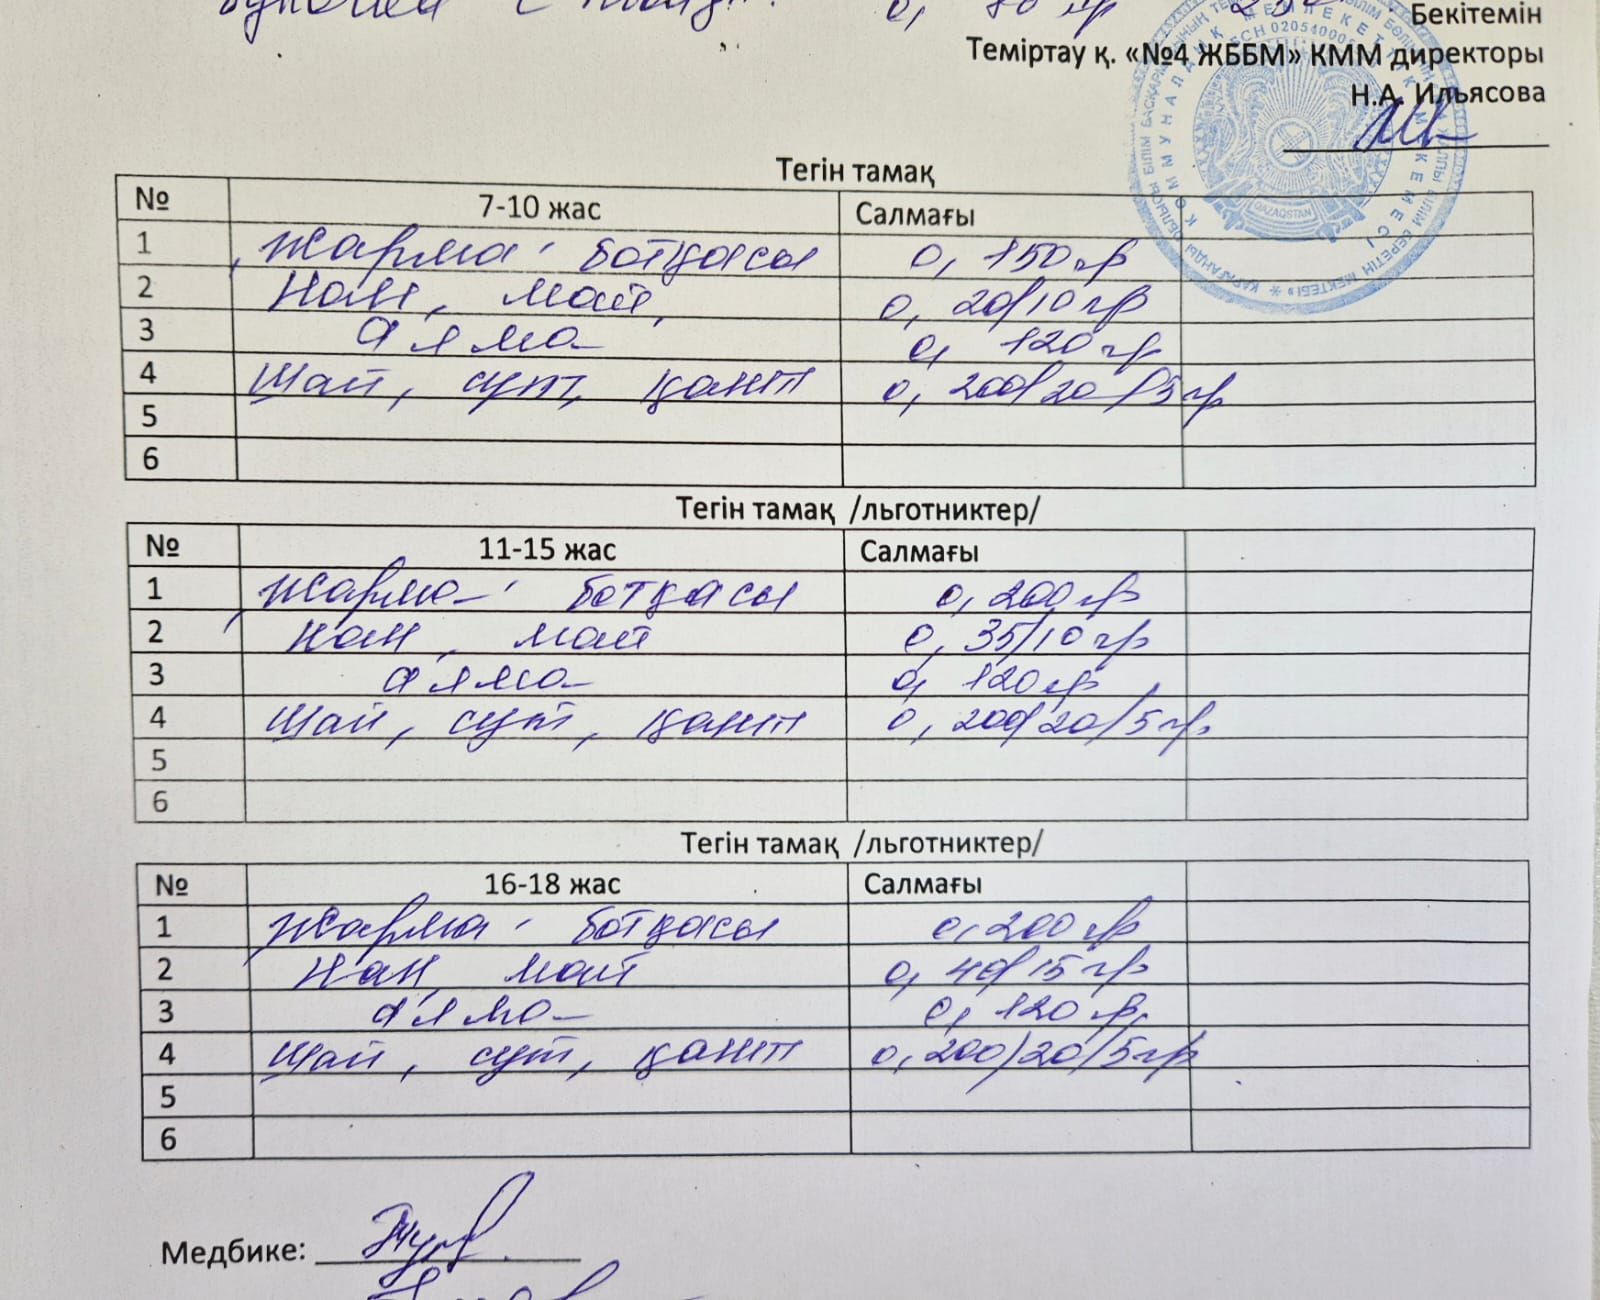 0, 70 гр
Бекітемін
Теміртау қ. «№4 ЖББМ» КММ директоры
Н.А. Ильясова
QAZAQSTAN
Тегін тамақ
№ 7-10 жас Салмағы
1 Жарма ботқасы 0, 150 гр
2 Нан, май, 0, 20/10 гр
3 алма 0, 120 гр
4 Шай, сүт, қант 0, 200/20/5 гр
5
6
Тегін тамақ /льготниктер/
№ 11-15 жас Салмағы
1 Жарма ботқасы 0, 200 гр
2 нан, май 0, 35/10 гр
3 алма 0, 120 гр
4 Шай, сүт, қант 0, 200/20/5 гр
5
6
Тегін тамақ /льготниктер/
№ 16-18 жас Салмағы
1 Жарма ботқасы 0, 200 гр
2 Нан, май 0, 40/15 гр
3 алма 0, 120 гр
4 Шай, сүт, қант 0, 200/20/5 гр
5
6
Медбике: